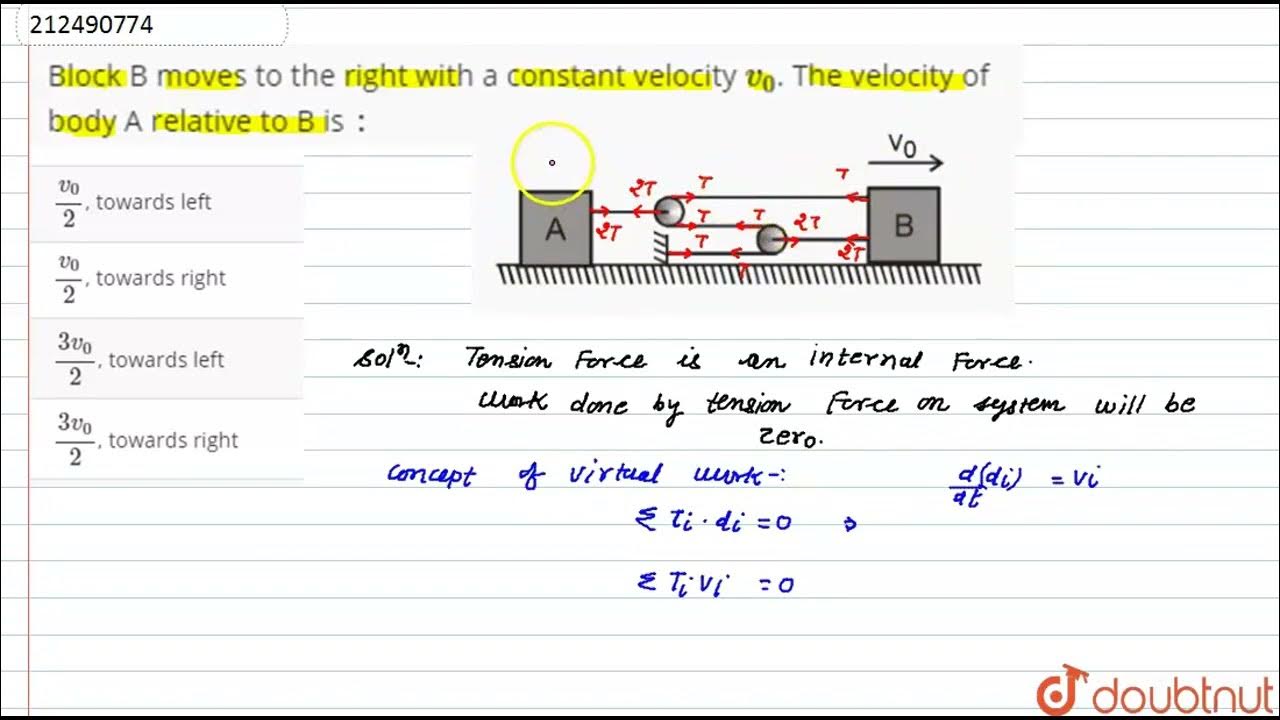 212490774
Block B moves to the right with a constant velocity v₀. The velocity of
body A relative to B is :
v₀/2, towards left
v₀/2, towards right
3v₀/2, towards left
3v₀/2, towards right
V₀
2T T T
A 2T T T 2T B
T T 2T
Solⁿ: Tension Force is an internal Force.
Work done by tension Force on system will be
zero.
Concept of virtual work-:
d(di)/dt = Vi
Σ Ti · di = 0 ⇒
Σ Ti Vi = 0
doubtnut